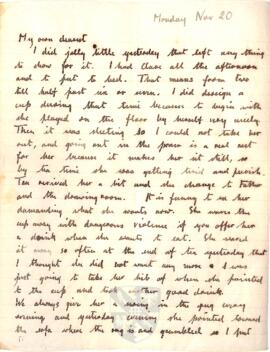 Monday Nov 20
My own dearest
I did jolly little yesterday that left any thing
to show for it. I had Clare all the afternoon
and to put to bed. That means from two
till half past six or seven. I did design a
cup during that time because to begin with
she played on the floor by herself very nicely.
Then it was sleeting so I could not take her
out, and going out in the pram is a real rest
for her because it makes her sit still, so
by tea time she was getting tired and peevish.
Tea revived her a bit and the change to Father
and the drawing room. It is funny to see her
demanding what she wants now. She waves the
cup away with dangerous violence if you offer her
a drink when she wants to eat. She waved
it away so often at the end of tea yesterday that
I thought she did not want any more & I was
just going to take her bib off when she pointed
to the cup and took a good drink.
We always give her a swing in the rug every
evening and yesterday evening she pointed toward
the sofa where the rug is and grumbled so I put